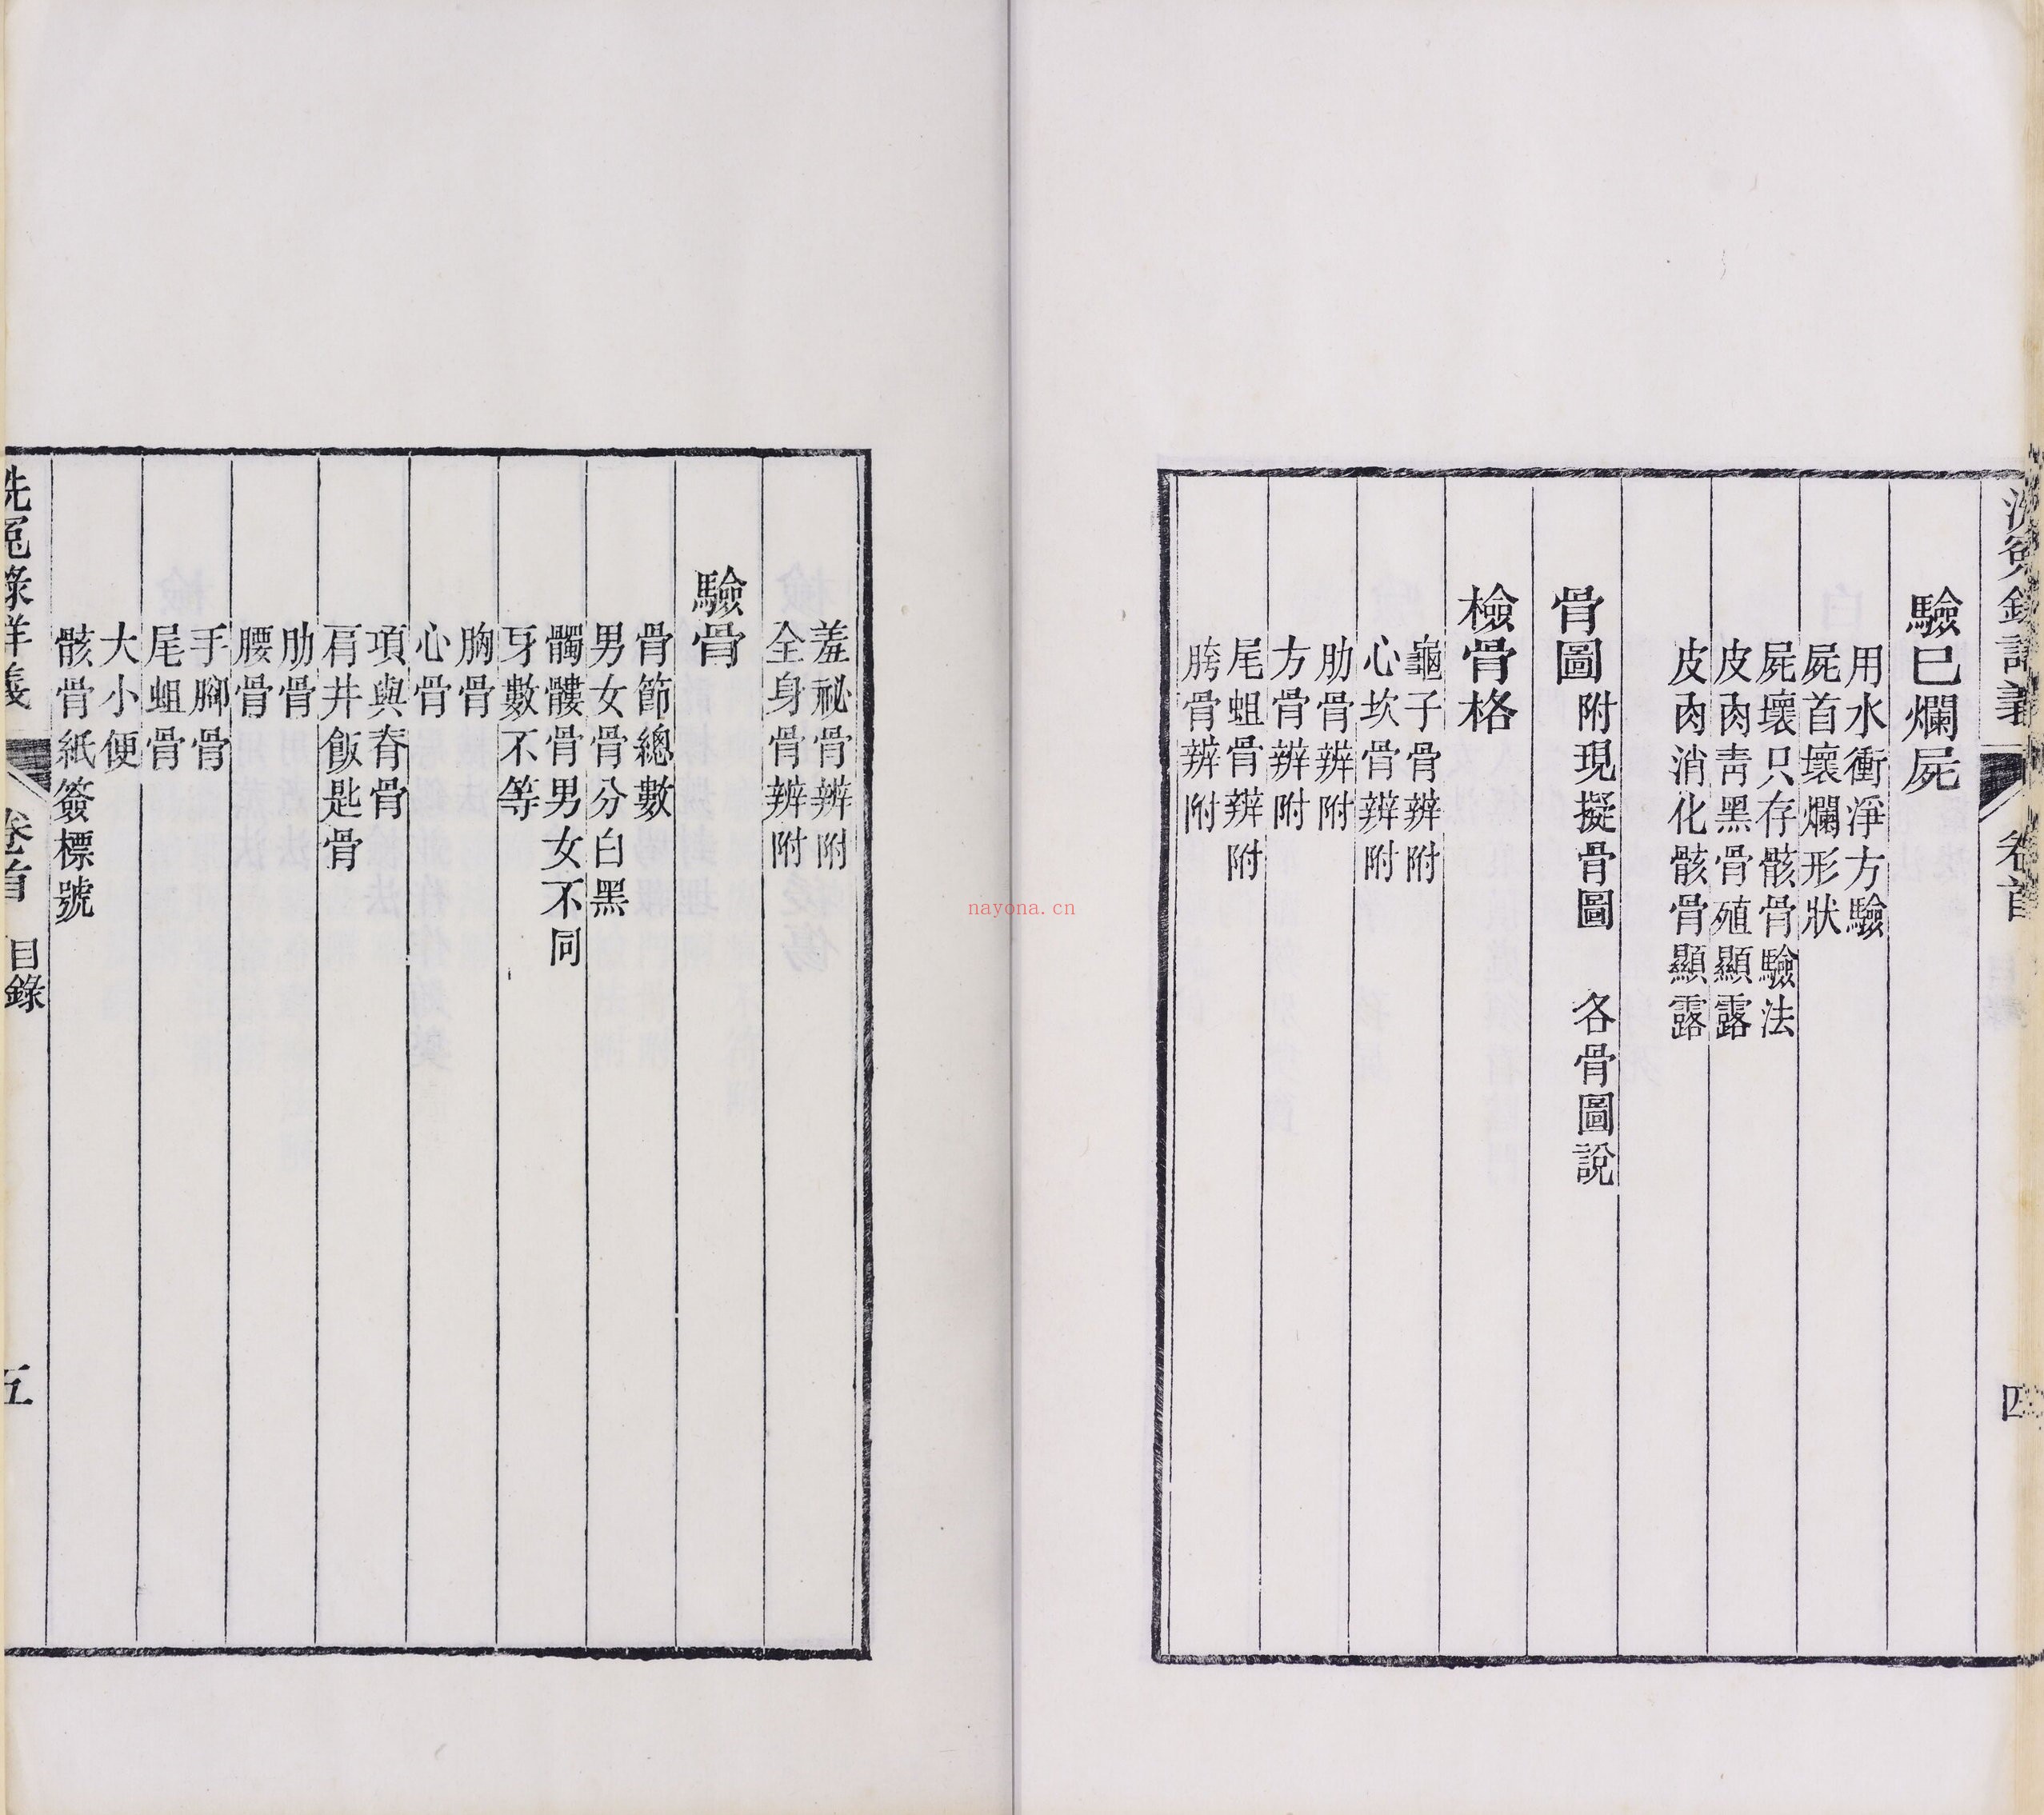 洗冤錄詳義 卷首 四
驗已爛屍
用水衝淨方驗
屍首壞爛形狀
屍壞只存骸骨驗法
皮肉靑黑骨殖顯露
皮肉消化骸骨顯露
骨圖 附現擬骨圖 各骨圖說
檢骨格
龜子骨辨附
心坎骨辨附
肋骨辨附
方骨辨附
尾蛆骨辨附
胯骨辨附
羞祕骨辨附
全身骨辨附
驗骨
骨節總數
男女骨分白黑
髑髏骨男女不同
牙數不等
胸骨
心骨
項與脊骨
肩井飯匙骨
肋骨
腰骨
手腳骨
尾蛆骨
大小便
骸骨紙簽標號
洗冤錄詳義 卷首 目錄 五
nayona.cn